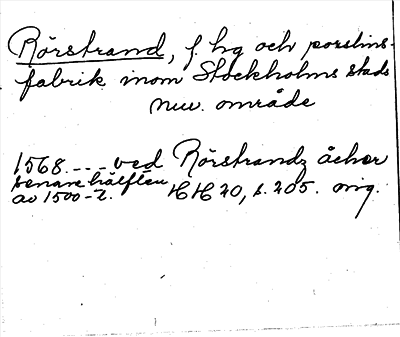 Rörstrand, f. hg och porslins-
fabrik inom Stockholms stads
nuv. område
1568 .--- ved Rörstrandz åcher
senare hälften
av 1500-t. HH 20, s. 205. orig.